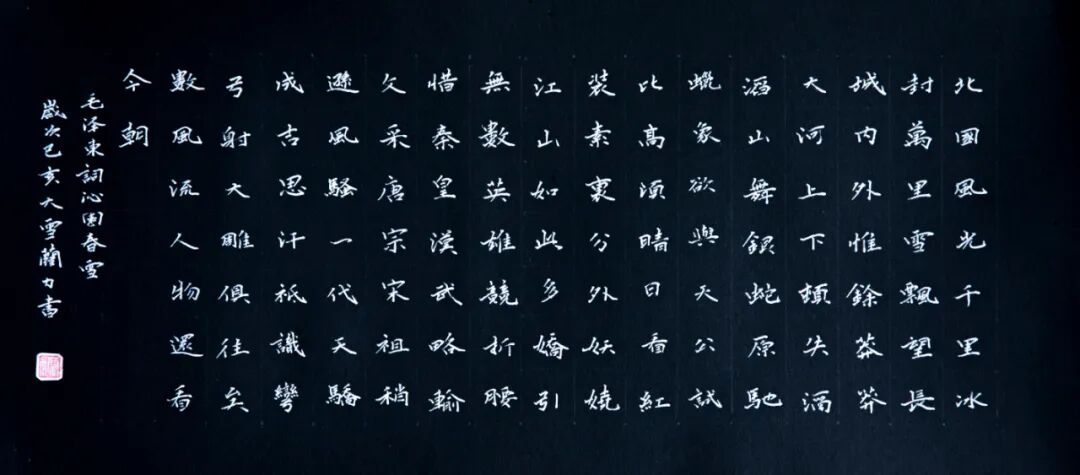 北國風光千里冰
封萬里雪飄望長
城内外惟餘莽莽
大河上下頓失滔
滔山舞銀蛇原馳
蠟象欲與天公試
比高須晴日看紅
裝素裹分外妖嬈
江山如此多嬌引
無數英雄競折腰
惜秦皇漢武略輸
文采唐宗宋祖稍
遜風騷一代天驕
成吉思汗祇識彎
弓射大雕俱往矣
數風流人物還看
今朝
毛泽東詞沁園春雪
歲次己亥大雪蘭力書